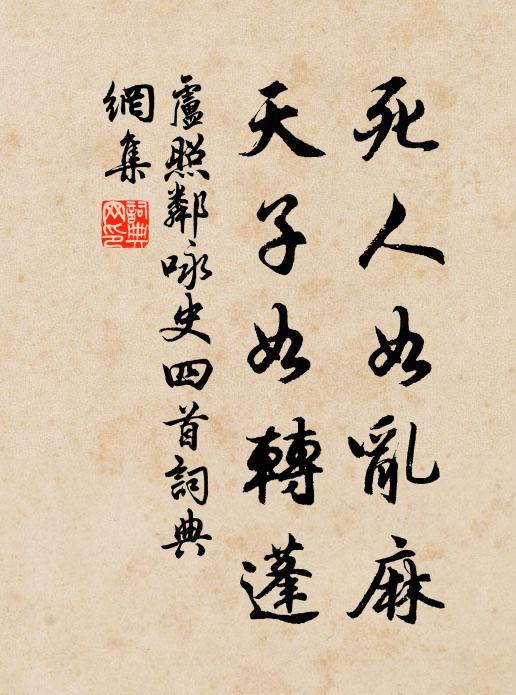 死人如亂麻
天子如轉蓬
盧照鄰咏史四首詞典
網集
詞典
网印